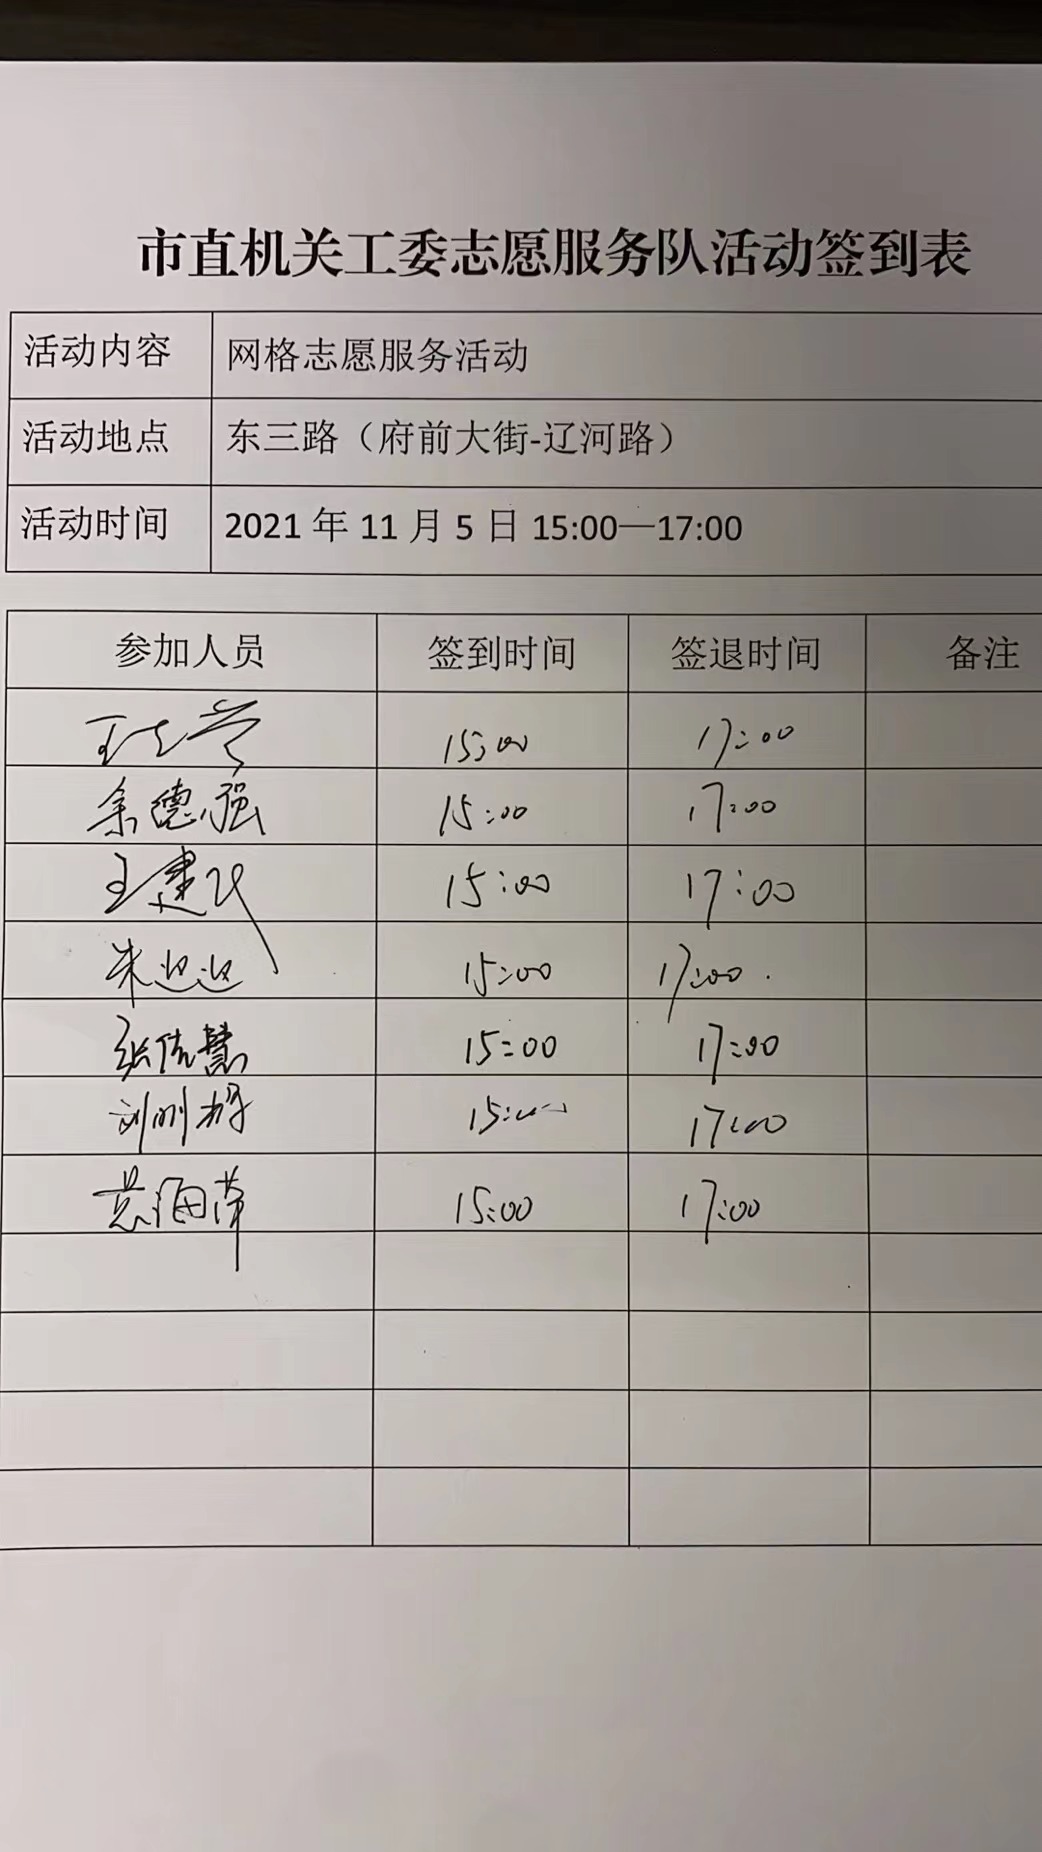 市直机关工委志愿服务队活动签到表
活动内容 网格志愿服务活动
活动地点 东三路（府前大街-辽河路）
活动时间 2021年11月5日 15:00—17:00
参加人员 签到时间 签退时间 备注
15:00 17:00
余德强 15:00 17:00
王建民 15:00 17:00
朱迎迎 15:00 17:00
张倩慧 15:00 17:00
15:00 17:00
15:00 17:00